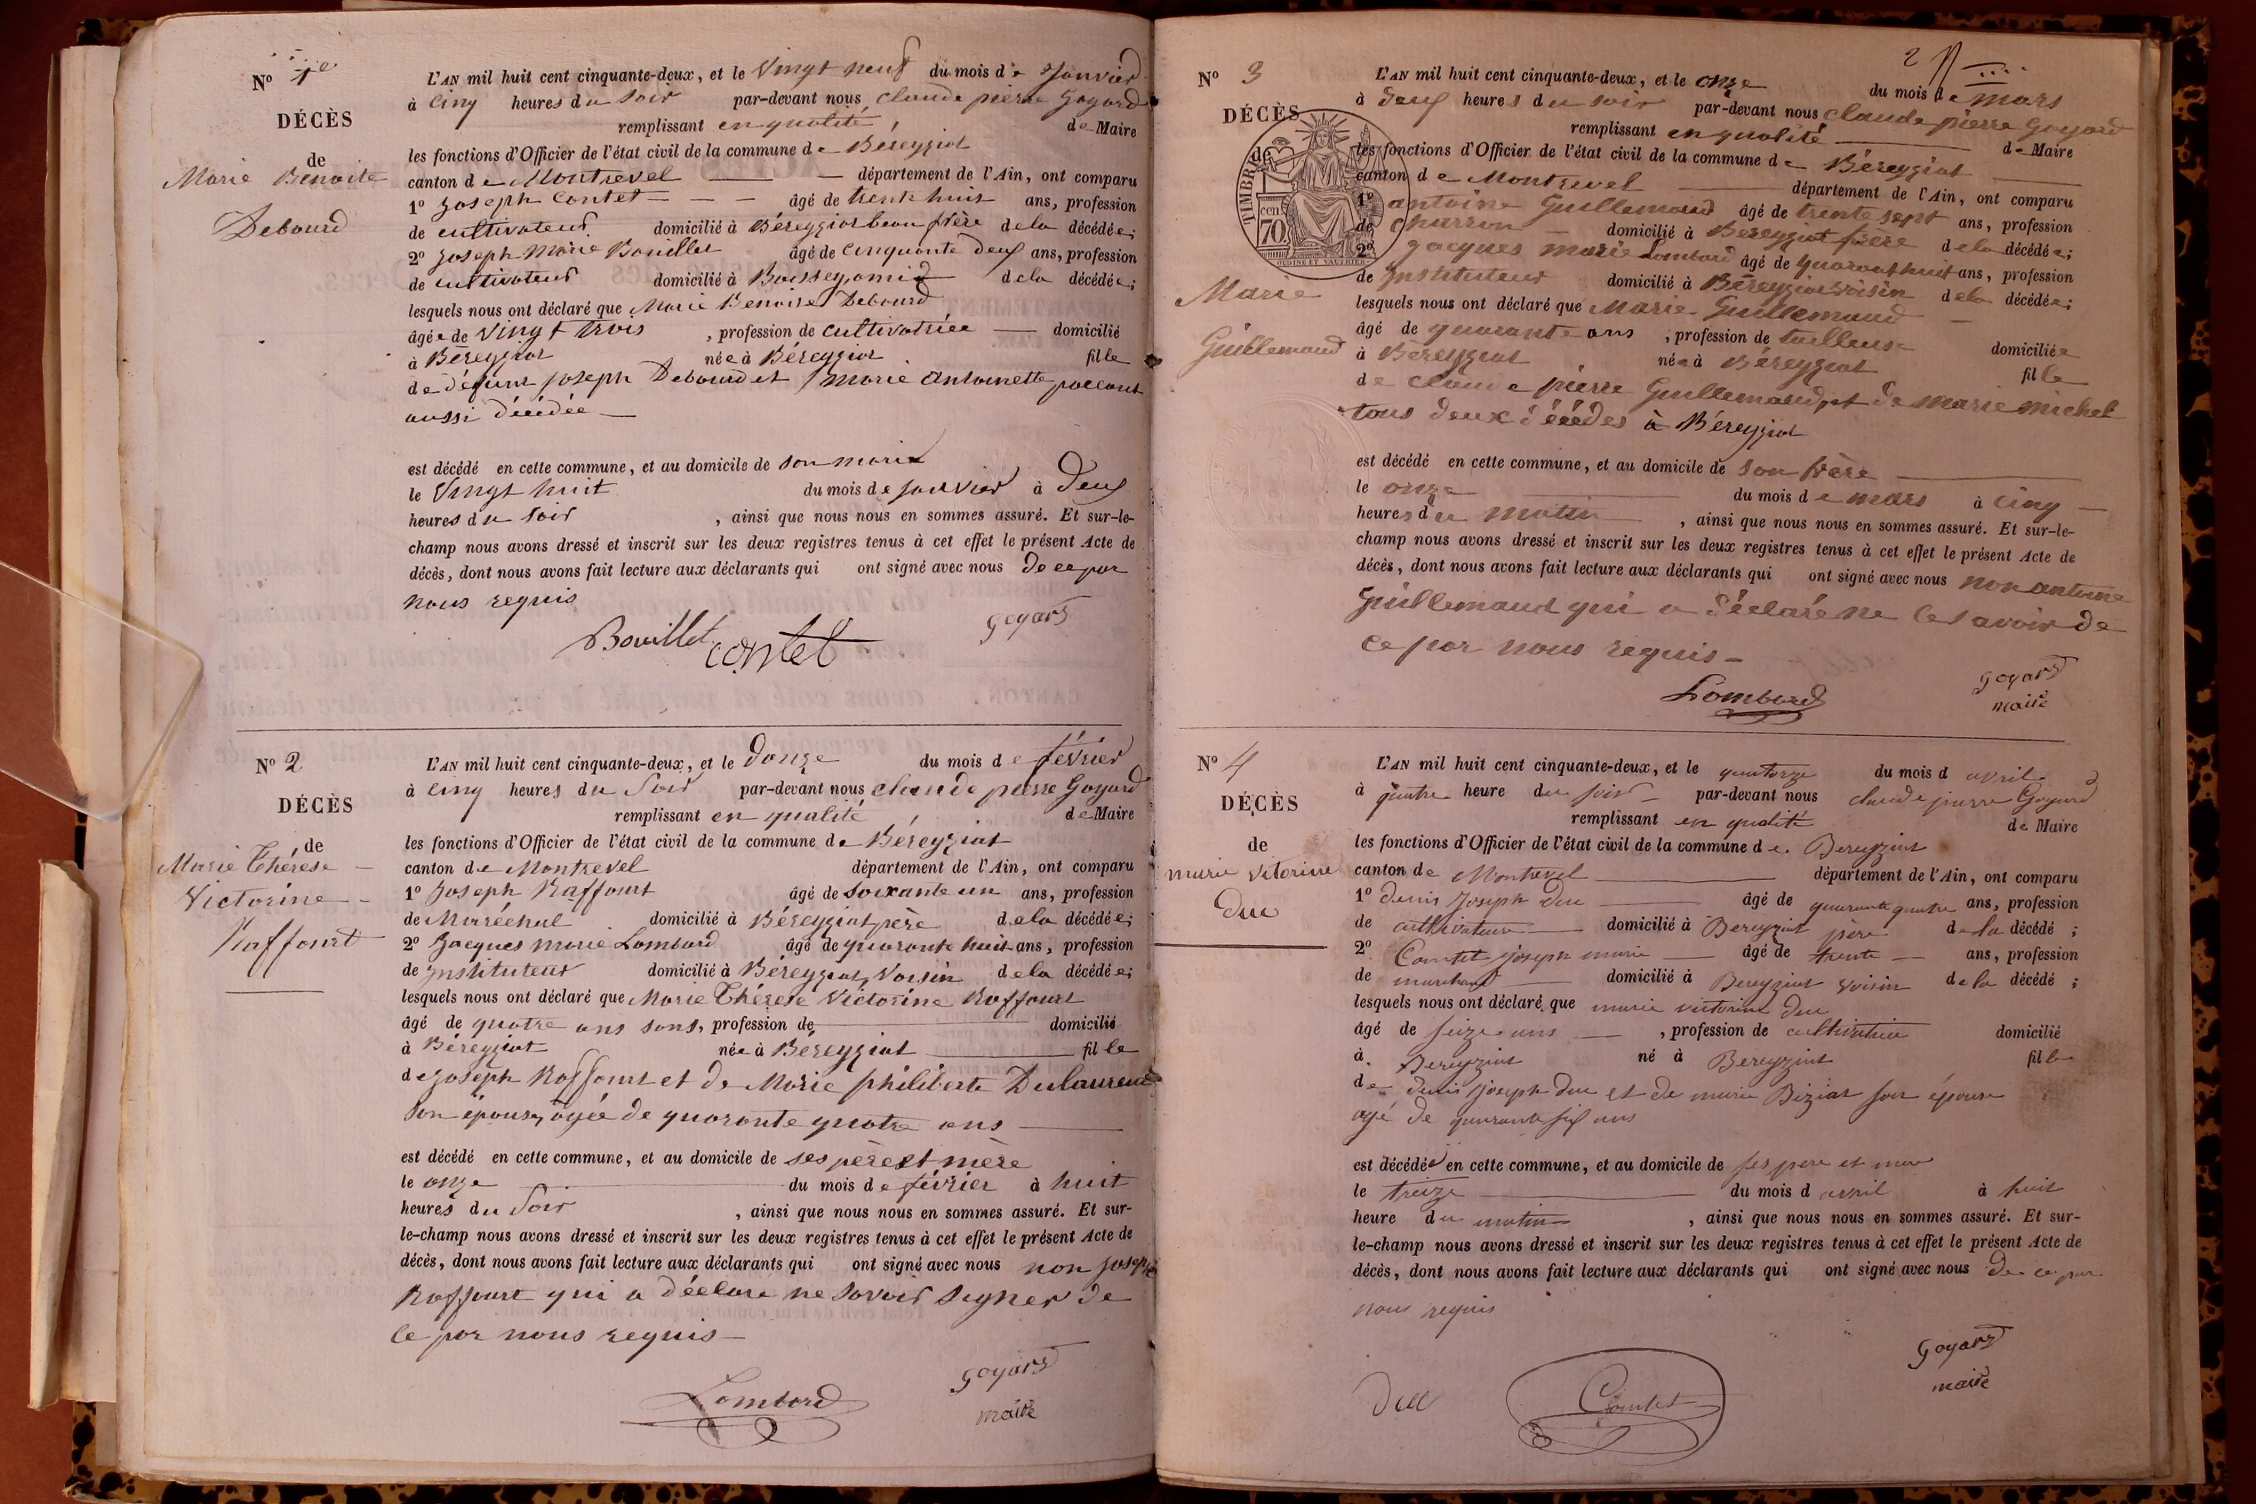 Nº 1e
DÉCÈS
de
Marie Benoite
Debourd
L'AN mil huit cent cinquante-deux, et le Vingt neuf du mois de Janvier
à cinq heures du soir par-devant nous claude pierre Goyard
remplissant en qualité de Maire
les fonctions d'Officier de l'état civil de la commune de Béreyziat
canton de Montrevel département de l'Ain, ont comparu
1º Joseph Contet âgé de trente huit ans, profession
de cultivateur domicilié à Béreyziat beau frère de la décédée;
2º Joseph Marie Bouillet âgé de cinquante deux ans, profession
de cultivateur domicilié à Boissey, ami de la décédée;
lesquels nous ont déclaré que Marie Benoite Debourd
âgée de Vingt trois , profession de cultivatrice domicilié
à Béreyziat née à Béreyziat fille
de défunt joseph Debourd et marie antoinette
aussi décédée
est décédé en cette commune, et au domicile de son mari
le Vingt huit du mois de janvier à deux
heures du soir , ainsi que nous nous en sommes assuré. Et sur-le-
champ nous avons dressé et inscrit sur les deux registres tenus à cet effet le présent Acte de
décès, dont nous avons fait lecture aux déclarants qui ont signé avec nous de ce par
nous requis
Bouillet contet Goyard
Nº 2
DÉCÈS
de
Marie Thérèse
Victorine
Raffourt
L'AN mil huit cent cinquante-deux, et le douze du mois de février
à cinq heures du soir par-devant nous claude pierre Goyard
remplissant en qualité de Maire
les fonctions d'Officier de l'état civil de la commune de Béreyziat
canton de Montrevel département de l'Ain, ont comparu
1º Joseph Raffourt âgé de soixante un ans, profession
de Maréchal domicilié à Béreyziat, père de la décédée;
2º Jacques marie Lombard âgé de quarante huit ans, profession
de instituteur domicilié à Béreyziat, Voisin de la décédée;
lesquels nous ont déclaré que Marie Thérèse Victorine Raffourt
âgé de quatre ans sans, profession de domicilié
à Béréyziat née à Béreyziat fille
de joseph Raffourt et de Marie philiberte Dulaurent
son épouse, âgée de quarante quatre ans
est décédé en cette commune, et au domicile de ses père et mère
le onze du mois de février à huit
heures du soir , ainsi que nous nous en sommes assuré. Et sur-
le-champ nous avons dressé et inscrit sur les deux registres tenus à cet effet le présent Acte de
décès, dont nous avons fait lecture aux déclarants qui ont signé avec nous non joseph
Raffourt qui a déclaré ne savoir signer de
ce par nous requis
Lombard Goyard
maire
2
Nº 3
DÉCÈS
de
TIMBRE
70 cen
Marie
Guillemaud
L'AN mil huit cent cinquante-deux, et le onze du mois de mars
à deux heures du soir par-devant nous claude pierre Goyard
remplissant en qualité de Maire
les fonctions d'Officier de l'état civil de la commune de Béreyziat
canton de Montrevel département de l'Ain, ont comparu
1º antoine Guillemaud âgé de trente sept ans, profession
de charron domicilié à Béreyziat frère de la décédée;
2º jacques marie Lombard âgé de quarante huit ans, profession
de instituteur domicilié à Béreyziat voisin de la décédée;
lesquels nous ont déclaré que Marie Guillemaud
âgé de quarante ans , profession de tailleuse domiciliée
à Béreyziat née à Béreyziat fille
de claude pierre Guillemaud, et de marie michel
tous deux décédés à Béreyziat
est décédé en cette commune, et au domicile de son frère
le onze du mois de mars à cinq
heures du matin , ainsi que nous nous en sommes assuré. Et sur-le-
champ nous avons dressé et inscrit sur les deux registres tenus à cet effet le présent Acte de
décès, dont nous avons fait lecture aux déclarants qui ont signé avec nous non antoine
Guillemaud qui a déclaré ne le savoir de
ce par nous requis
Lombard Goyard
maire
Nº 4
DÉCÈS
de
marie Vitorine
duc
L'AN mil huit cent cinquante-deux, et le quatorze du mois d avril
à quatre heure du soir par-devant nous claude pierre Goyard
remplissant en qualité de Maire
les fonctions d'Officier de l'état civil de la commune de Bereyziat
canton de Montrevel département de l'Ain, ont comparu
1º denis Joseph duc âgé de quarante quatre ans, profession
de cultivateur domicilié à Bereyziat père de la décédé;
2º Comtet joseph marie âgé de trente ans, profession
de marchand domicilié à Bereyziat voisin de la décédé;
lesquels nous ont déclaré que marie victorine duc
âgé de seize ans , profession de cultivatrice domicilié
à Bereyziat né à Bereyziat fille
de denis joseph duc et de marie Biziat son épouse
agé de quarante six ans
est décédé en cette commune, et au domicile de ses pere et mere
le treize du mois d avril à huit
heure du matin , ainsi que nous nous en sommes assuré. Et sur-
le-champ nous avons dressé et inscrit sur les deux registres tenus à cet effet le présent Acte de
décès, dont nous avons fait lecture aux déclarants qui ont signé avec nous de ce par
nous requis
duc Comtet Goyard
maire